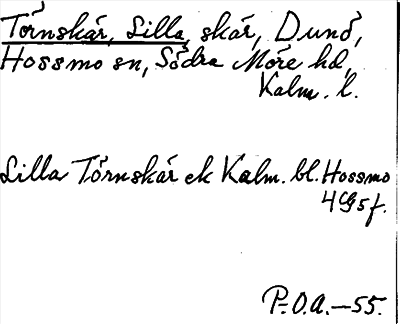 Törnskär, Lilla, skär, Dunö,
Hossmo sn, Södra Möre hd,
Kalm. l.
Lilla Törnskär ek Kalm. bl. Hossmo
4G5f.
P.O.A.—55.